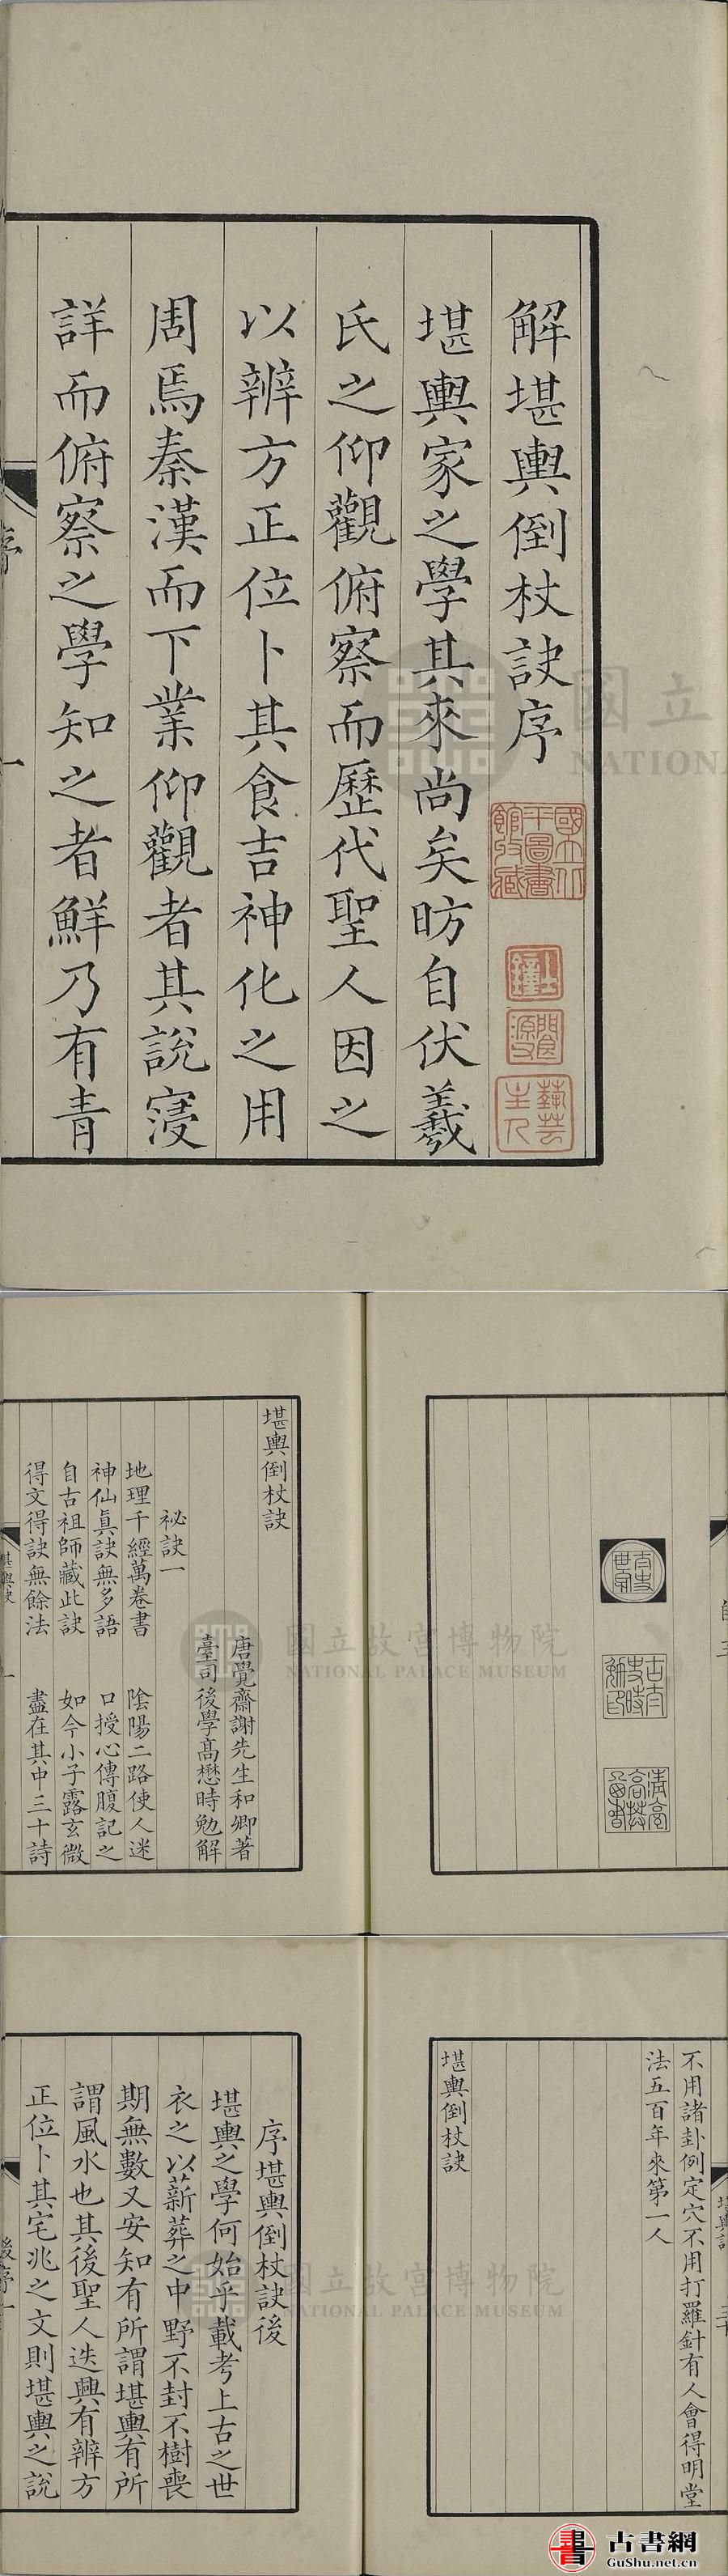 解堪輿倒杖訣序
堪輿家之學其來尚矣昉自伏羲
氏之仰觀俯察而歷代聖人因之
以辨方正位卜其食吉神化之用
周焉秦漢而下業仰觀者其說寖
詳而俯察之學知之者鮮乃有青
序
一
國立
NATIONA
堪輿倒杖訣
唐覺齋謝先生和卿著
臺司後學高懋時勉解
祕訣一
地理千經萬卷書 陰陽二路使人迷
神仙真訣無多語 口授心傳腹記之
自古祖師藏此訣 如今小子露玄微
得文得訣無餘法 盡在其中三十詩
堪輿訣
一
國立故宮博物院
NATIONAL PALACE MUSEUM
不用諸卦例定穴不用打羅針有人會得明堂
法五百年來第一人
堪輿倒杖訣
序堪輿倒杖訣後
堪輿之學何始乎載考上古之世
衣之以薪葬之中野不封不樹喪
期無數又安知有所謂堪輿有所
謂風水也其後聖人迭興有辨方
正位卜其宅兆之文則堪輿之說
後序
一
國立故宮博物院
NATIONAL PALACE MUSEUM
書
古書網
GuShu.net.cn